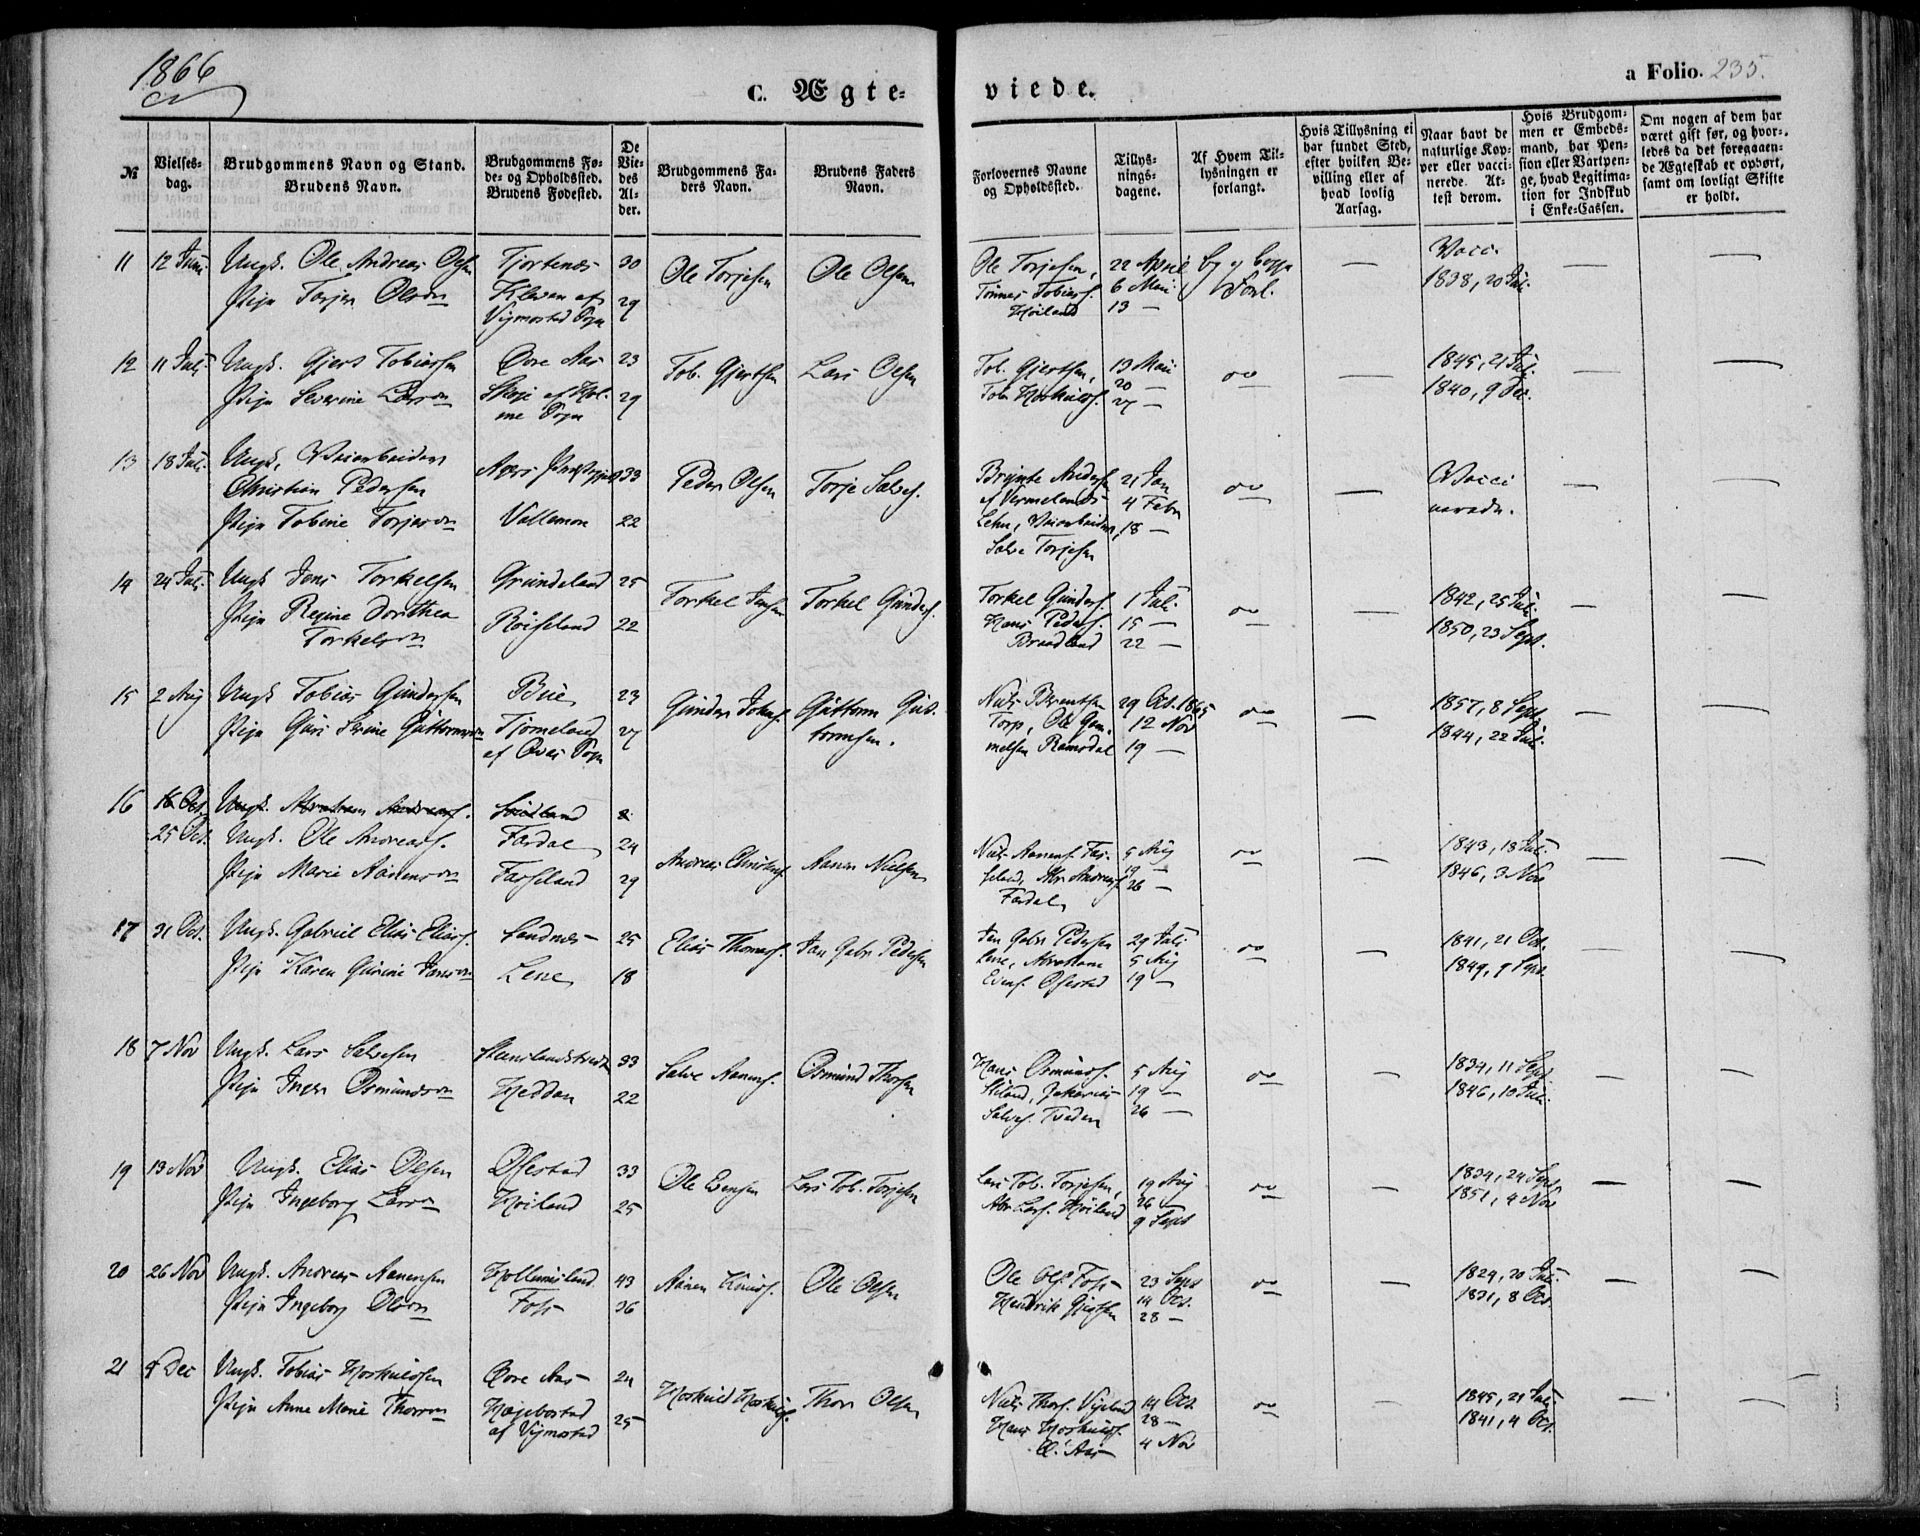 1866
C. Ægte-
viede.
a Folio. 235.
№
Vielses-
dag.
Brudgommens Navn og Stand.
Brudens Navn.
Brudgommens Fø-
de- og Opholdssted.
Brudens Fødested.
De
Vie-
des
Al-
der.
Brudgommens Fa-
ders Navn.
Brudens Faders
Navn.
Forlovernes Navne
og Opholdssted.
Tillys-
nings-
dagene.
Af Hvem Til-
lysningen er
forlangt.
Hvis Tillysning ei
har fundet Sted,
efter hvilken Be-
villing eller af
hvad lovlig
Aarsag.
Naar havt de
naturlige Kop-
per eller vacci-
nerede. At-
test derom.
Hvis Brudgom-
men er Embeds-
mand, har Pen-
sion eller Vartpen-
ge, hvad Legitima-
tion for Indskud
i Enke-Cassen.
Om nogen af dem har
været gift før, og hvor-
ledes da det foregaaen-
de Ægteskab er ophørt,
samt om lovligt Skifte
er holdt.
11 12 Juni Ungk. Ole Andreas Olsen
Pige Torjer Olsdn
30
29
Vigmostad Sogn
Ole Torjesen
Ole Olsen
Ole Torjesen,
Tønnes Tobias.
Høiland
22 April
6 Mai
13 —
Vacci.
1838, 20 Juli
12 11 Juli Ungk. Gjert Tobiassen
Pige Severine Larsdn
Øvre Aas
23
29
Tob. Gjertsen
Lars Olsen
Tob. Gjertsen,
13 Mai
20 —
27 —
1845, 21 Juli
1840, 9 Dec.
13 18 Juli Ungk. Veiarbeider
Christian Pedersen
Pige Tobine Torjesdn
33
Vallemon
22
Peder Olsen
Torje Salves.
Brynte Andersen
af Vermelands
Lehn, Veiarbeider,
Salve Torjesen
21 Jan
4 Febr
18 —
Vacci
nerede.
14 24 Juli Ungk Jens Torkelsen
Pige Regine Dorthea
Torkelsdn
Grundeland
Røiseland
25
22
Torkel Jensen
Torkel Gunders.
Torkel Gunders.
Hans Peders.
Braadland
1 Juli
15 —
22 —
1842, 25 Juli
1850, 23 Sept.
15 2 Aug Ungk Tobias Gundersen
Pige Guri Serine Guttormsdn
Bue
Tjomeland
af Øvre Sogn
23
27
Gunder Johns.
Guttorm Gut-
tormsen.
Niels Berentsen
Torp, Ole Gun-
melsen Ramsdal
29 Oct. 1865
12 Nov
19 —
1857, 8 Sept
1844, 22 Juli
16 16 Oct. Ungk. Abraham Andreas.
25 Oct. Ungk. Ole Andreas.
Pige Marie Aanensdn
Fardal
Faaseland
24
29
Aanen Nielsen
Niels Aanens.
Fardal
5 Aug
19 —
26 —
1843, 18 Juli
1846, 3 Nov
17 31 Oct. Ungk. Gabriel Elias Elias.
Pige Karen Gurine Jansdn
Sandnes
Lene
25
18
Elias Thomas.
Jan Gabr. Pedersen
Jan Gabr Pedersen
Lene, Abraham
Evens. Øfsestad
29 Juli
5 Aug
19 —
1841, 21 Oct.
1849, 9 Sept.
18 7 Nov Ungk. Lars Salvesen
Pige Inger Osmundsdn
Heddan
33
22
Salve Aanens.
Osmund Thorsen
Hans Osmunds.
Salves. Tveden
5 Aug
19 —
26 —
1834, 11 Sept
1846, 10 Juli
19 13 Nov Ungk. Elias Olsen
Pige Ingeborg Larsdn
Øfsestad
Høiland
33
25
Ole Evensen
Lars Tob. Torjesen
Lars Tob. Torjesen,
Abr Lars. Høiland
19 Aug
26 —
9 Sept
1834, 24 Sept
1851, 4 Nov
20 26 Nov Ungk. Andreas Aanensen
Pige Ingeborg Olsdn
Foss
43
36
Aanen Knuds.
Ole Olsen
Ole Ols. Foss
Hendrik Gjertsen
23 Sept
14 Oct.
28 —
1829, 20 Juli
1831, 8 Oct.
21 4 Dec Ungk. Tobias Hoskuldsen
Pige Anne Marie Thorsdn
Øvre Aas
Hægebostad
af Vigmostad
24
25
Hoskuld Hoskuds.
Thor Olsen
Niels Thors. Vigeland
Hans Hoskulds.
Aas
14 Oct
28 —
4 Nov
1845, 21 Juli
1841, 4 Oct.